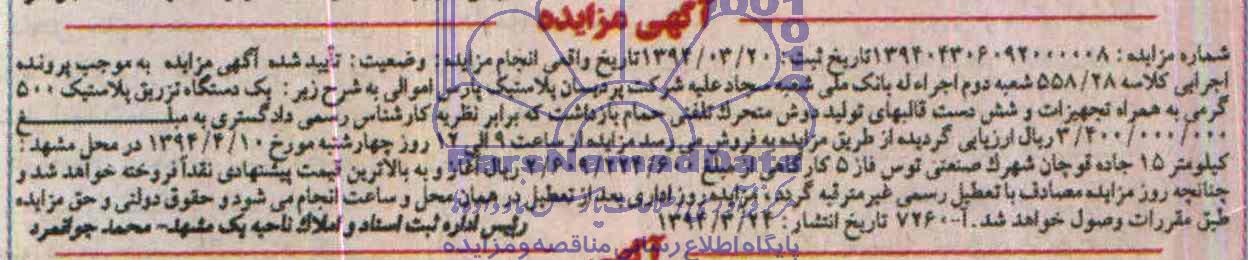 آگهی مزایده
شماره مزایده: ۱۳۹۴۰۴۳۰۶۰۹۲۰۰۰۰۰۸ تاریخ ثبت: ۱۳۹۴/۰۳/۲۰ تاریخ واقعی انجام مزایده: وضعیت: تأیید شده آگهی مزایده به موجب پرونده
اجرایی کلاسه ۵۵۸/۲۸ شعبه دوم اجرا له بانک ملی شعبه سجاد علیه شرکت پردیسان پلاستیک پارس اموالی به شرح زیر: یک دستگاه تزریق پلاستیک ۵۰۰
گرمی به همراه تجهیزات و شش دست قالبهای تولید دوش متحرک تلفنی حمام بازداشت که برابر نظریه کارشناس رسمی دادگستری به مبلغ
۳/۴۰۰/۰۰۰/۰۰۰ ریال ارزیابی گردیده از طریق مزایده به فروش می رسد مزایده از ساعت ۹ الی روز چهارشنبه مورخ ۱۳۹۴/۴/۱۰ در محل مشهد:
کیلومتر ۱۵ جاده قوچان شهرک صنعتی توس فاز ۵ کارگاهی از مبلغ ریال آغاز و به بالاترین قیمت پیشنهادی نقداً فروخته خواهد شد و
چنانچه روز مزایده مصادف با تعطیل رسمی غیرمترقبه گردد، مزایده روز اداری بعد از تعطیل در همان محل و ساعت انجام می شود و حقوق دولتی و حق مزایده
طبق مقررات وصول خواهد شد. آ-۷۲۶۰۰ تاریخ انتشار: ۱۳۹۴/۳/۲۴
رئیس اداره ثبت اسناد و املاک ناحیه یک مشهد- محمد جوانمرد
پایگاه اطلاع رسانی مناقصه و مزایده